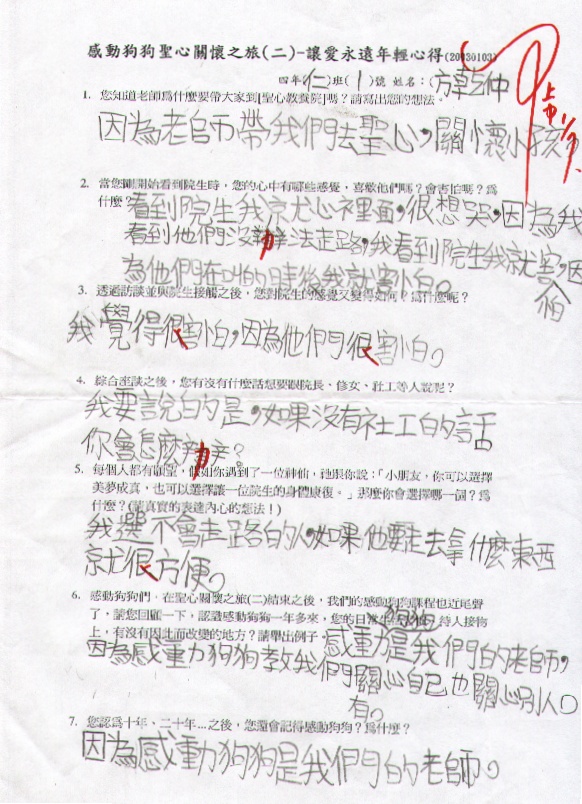 感動狗狗聖心關懷之旅(二)-讓愛永遠年輕心得(20030103)
四年仁班(1)號 姓名:(方乾仲
1. 您知道老師爲什麼要帶大家到[聖心教養院]嗎?請寫出您的想法。
因為老師帶我們去聖心,關懷小孩
2. 當您剛開始看到院生時,您的心中有哪些感覺,喜歡他們嗎?會害怕嗎?爲
什麼?看到院生我京尤心裡面,很想哭,因為我
看到他們沒辦法走路,我看到院生我就害,因
怕
為他們在叫的時後我就害怕。
3. 透過訪談並與院生接觸之後,您對院生的感覺又變得如何?爲什麼呢?
我覺得很害怕,因為他們很害怕。
4. 綜合座談之後,您有沒有什麼話想要跟院長、修女、社工等人說呢?
我要說的是,如果沒有社工的話
你會怎麼辦?
5. 每個人都有願望,假如你遇到了一位神仙,祂跟你說:「小朋友,你可以選擇
美夢成真,也可以選擇讓一位院生的身體康復。」那麼你會選擇哪一個?爲
什麼?(請真實的表達內心的想法!)
我選不會走路的人,如果他要走去拿什麼東西
就很方便。
6. 感動狗狗們,在聖心關懷之旅(二)結束之後,我們的感動狗狗課程也近尾聲
了,請您回顧一下,認識感動狗狗一年多來,您的日常生活、待人接物
狗狗
上,有沒有因此而改變的地方?請舉出例子。感動是我們的老師,
因為感動狗狗教我們關心自己也關心別人。
有。
7. 您認爲十年、二十年...之後,您還會記得感動狗狗?爲什麼?
因為感動狗狗是我們的老師。